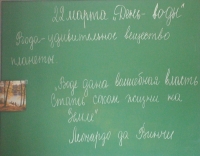 22 марта "День воды"
Вода - удивительное вещество
планеты.
"Воде дана волшебная власть
Стать соком жизни на
Земле"
Леонардо да Винчи